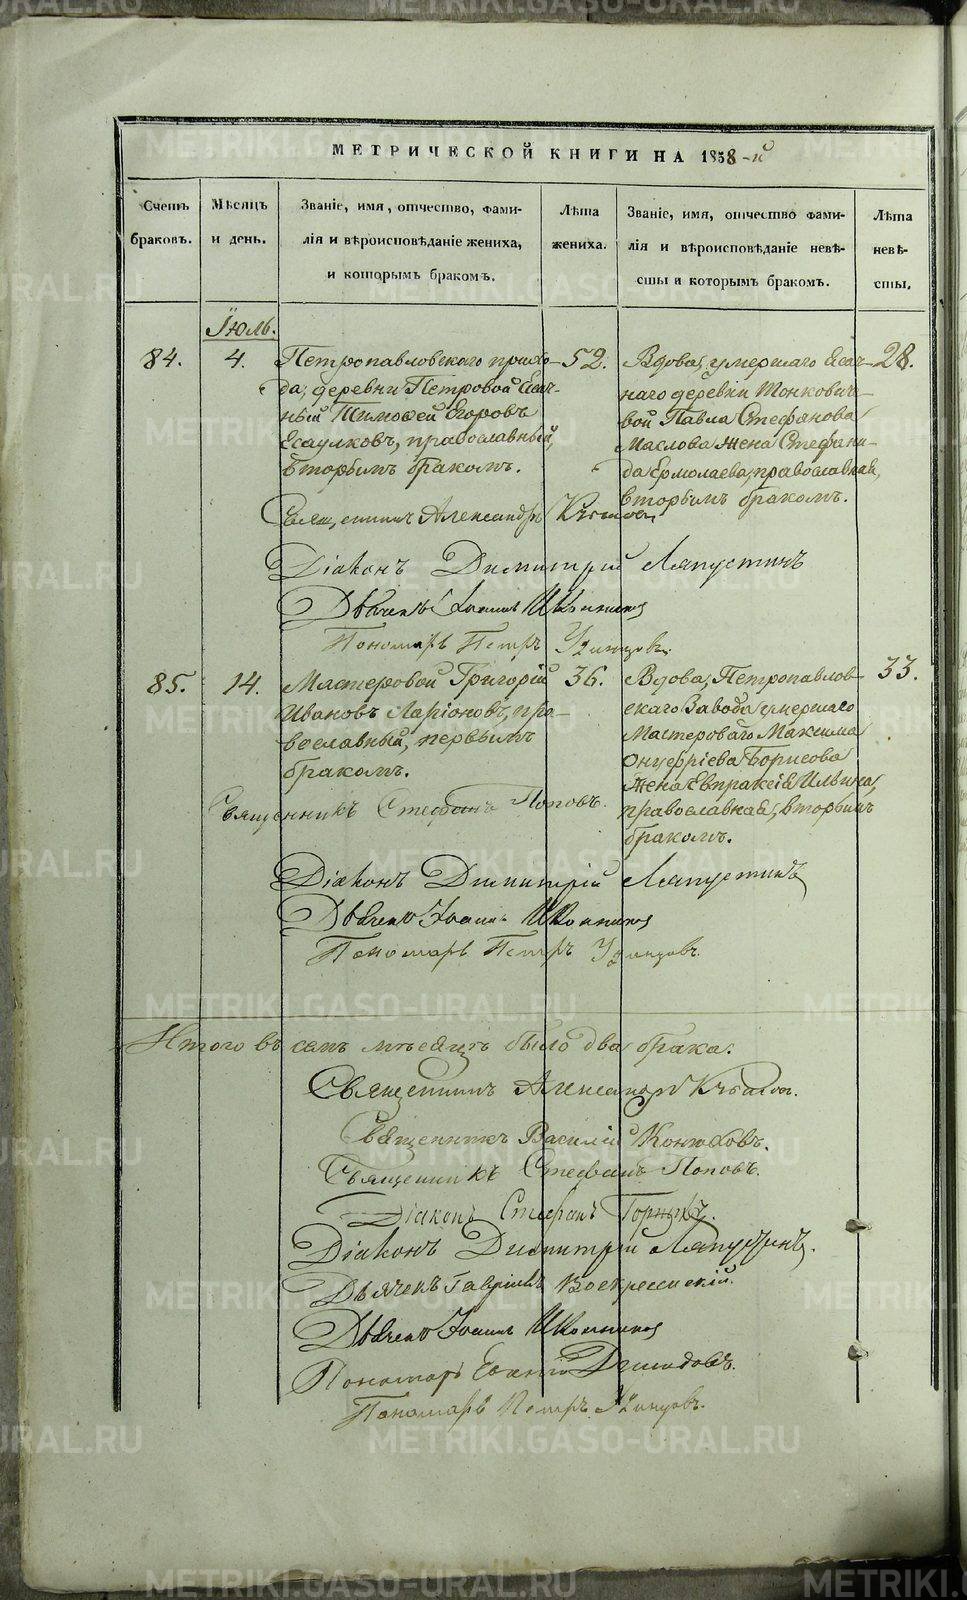 МЕТРИЧЕСКОЙ КНИГИ НА 1858-й
Счетъ браковъ.
Мѣсяцъ и день.
Званіе, имя, отчество, фами-
лія и вѣроисповѣданіе жениха,
и которымъ бракомъ.
Лѣта
жениха.
Званіе, имя, отчество фами-
лія и вѣроисповѣданіе невѣ-
сты и которымъ бракомъ.
Лѣта
невѣ-
сты.
Іюль.
84.
4.
Петропавловскаго прихо-
да, деревни Петровой Ясач-
ный Тимофей Егоровъ
Есаулковъ, православный,
вторымъ бракомъ.
52.
Вдова, умершаго Ясач-
наго деревни Тонкович-
вой Павла Стефанова
Маслова жена Стефани-
да Ермолаева, православная,
вторымъ бракомъ.
28.
Священникъ Александръ
Діаконъ Димитрій Ляпустинъ
Дьячекъ Іоаннъ
Пономарь Петръ
85.
14.
Мастеровой Григорій
Ивановъ Ларіоновъ, пра-
вославный, первымъ
бракомъ.
36.
Вдова, Петропавлов-
скаго Завода умершаго
Мастероваго Максима
Онуфріева Борисова
жена Евпраксія Ильина,
православная, вторымъ
бракомъ.
33.
Священникъ Стефанъ Поповъ.
Діаконъ Димитрій Ляпустинъ
Дьячекъ Іоаннъ
Пономарь Петръ
Итого въ семъ мѣсяцѣ было два брака.
Священникъ Александръ
Священникъ Василій Конюховъ.
Священникъ Стефанъ Поповъ.
Діаконъ Стефанъ Горныхъ.
Діаконъ Димитрій Ляпустинъ.
Дьячекъ Гавріилъ Воскресенскій.
Дьячекъ Іоаннъ
Пономарь Демидовъ.
Пономарь Петръ
METRIKI.GASO-URAL.RU